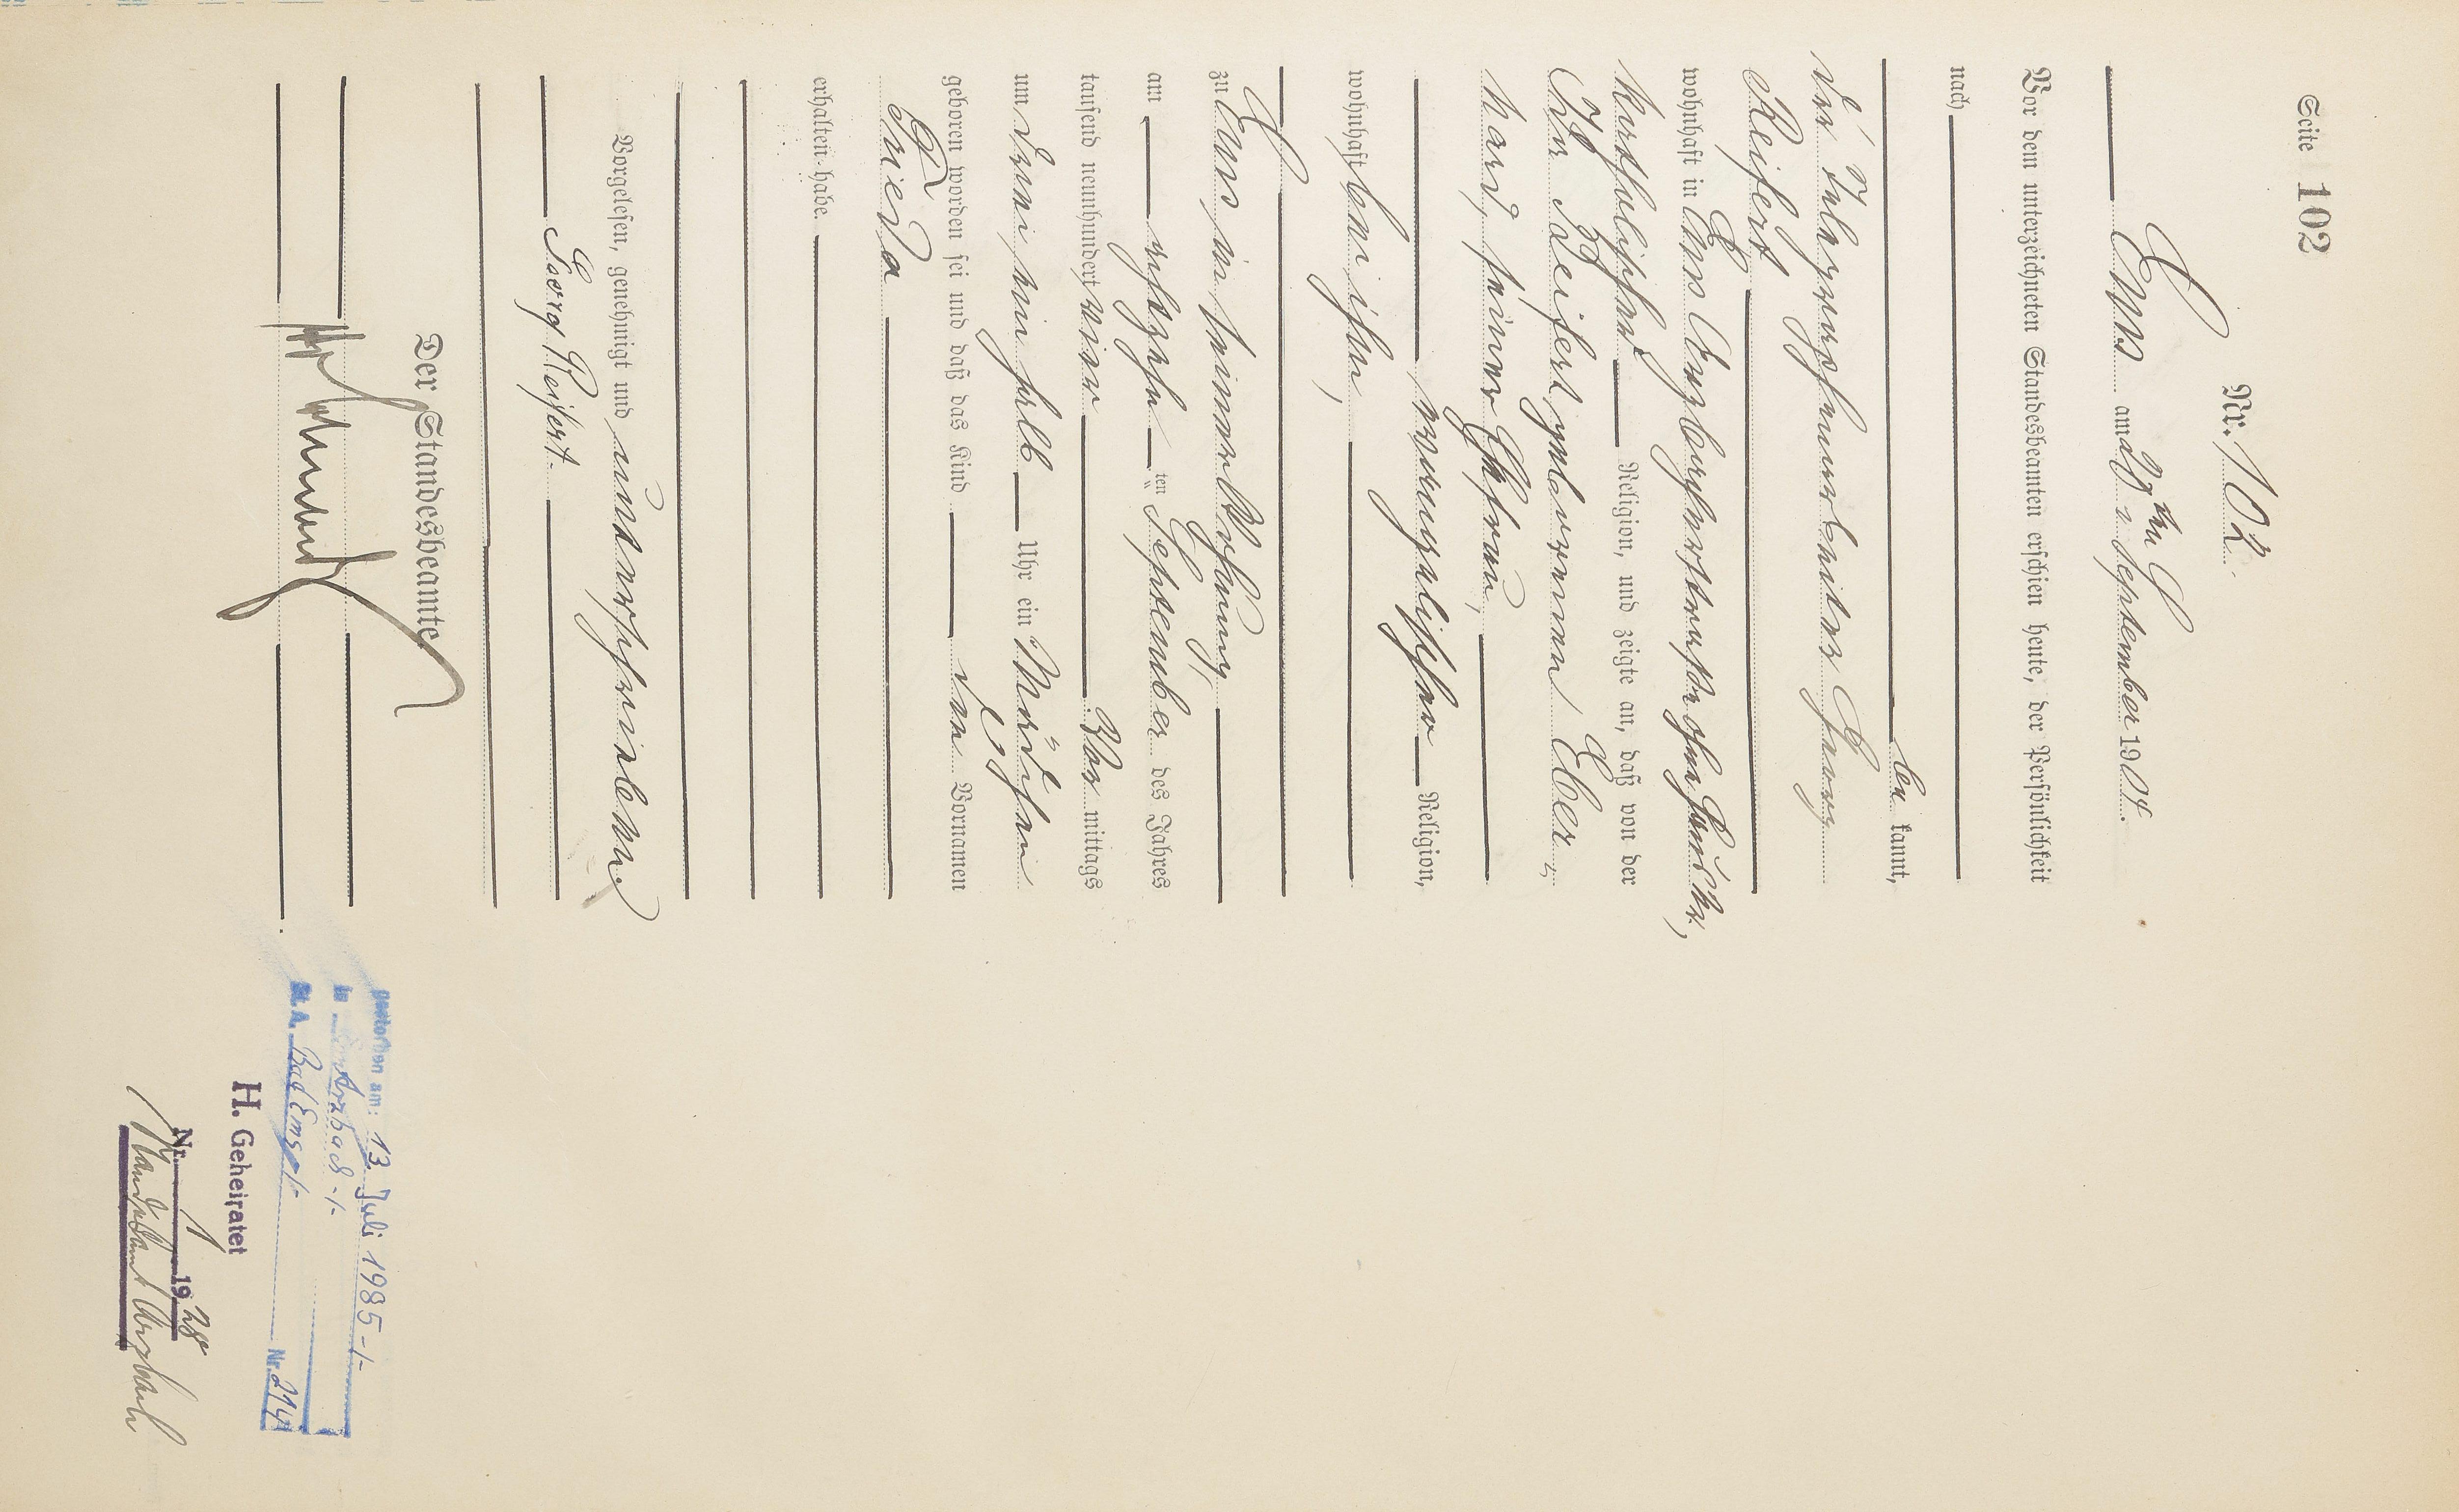 Seite 102
Nr. 102.
Ems am 27ten September 1904.
Vor dem unterzeichneten Standesbeamten erschien heute, der Persönlichkeit
nach
be kannt,
der Telegraphenarbeiter Georg
Reifert
wohnhaft in Ems
katholischer Religion, und zeigte an, daß von der
Reifert geborenen Eber
hard, seiner Ehefrau,
evangelischer Religion,
wohnhaft bei ihm,
zu Ems in seiner Wohnung,
am ten September des Jahres
tausend neunhundert vier Vor mittags
um drei ein halb Uhr ein Mädchen
geboren worden sei und daß das Kind den Vornamen
Frieda
erhalten habe.
Vorgelesen, genehmigt und unterschrieben.
Georg Reifert.
Der Standesbeamte
gestorben am: 13. Juli 1985 -/-
in Arzbach -/-
St. A. Bad Ems -/- Nr. 214
H. Geheiratet
Nr. 1 1928
Standesamt Arzbach